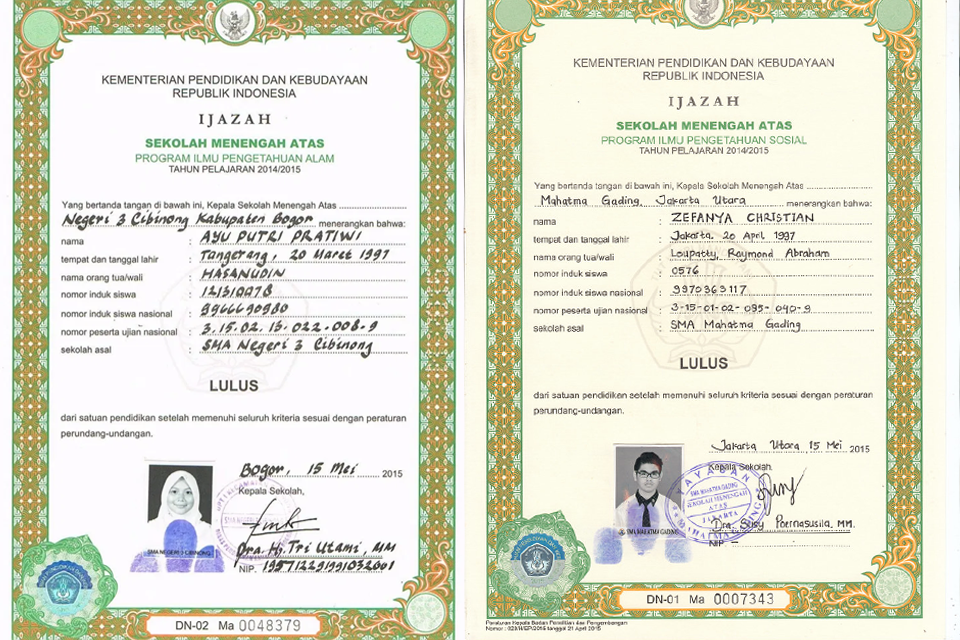 KEMENTERIAN PENDIDIKAN DAN KEBUDAYAAN
REPUBLIK INDONESIA
IJAZAH
SEKOLAH MENENGAH ATAS
PROGRAM ILMU PENGETAHUAN ALAM
TAHUN PELAJARAN 2014/2015
Yang bertanda tangan di bawah ini, Kepala Sekolah Menengah Atas
Negeri 3 Cibinong Kabupaten Bogor menerangkan bahwa:
nama : AYU PUTRI PRATIWI
tempat dan tanggal lahir : Tangerang, 20 Maret 1997
nama orang tua/wali : HASANUDIN
nomor induk siswa : 121310078
nomor induk siswa nasional : 9966690980
nomor peserta ujian nasional : 3.15.02.13.022.008.9
sekolah asal : SMA Negeri 3 Cibinong
LULUS
dari satuan pendidikan setelah memenuhi seluruh kriteria sesuai dengan peraturan
perundang-undangan.
Bogor, 15 Mei 2015
Kepala Sekolah,
SMA NEGERI 3 CIBINONG
Dra. Hj. Tri Utami, MM
NIP. 195712291991032001
DN-02 Ma 0048379
KEMENTERIAN PENDIDIKAN DAN KEBUDAYAAN
REPUBLIK INDONESIA
IJAZAH
SEKOLAH MENENGAH ATAS
PROGRAM ILMU PENGETAHUAN SOSIAL
TAHUN PELAJARAN 2014/2015
Yang bertanda tangan di bawah ini, Kepala Sekolah Menengah Atas
Mahatma Gading, Jakarta Utara menerangkan bahwa:
nama : ZEFANYA CHRISTIAN
tempat dan tanggal lahir : Jakarta, 20 April 1997
nama orang tua/wali : Loupatty, Raymond Abraham
nomor induk siswa : 0576
nomor induk siswa nasional : 9970363117
nomor peserta ujian nasional : 3-15-01-02-095-040-9
sekolah asal : SMA Mahatma Gading
LULUS
dari satuan pendidikan setelah memenuhi seluruh kriteria sesuai dengan peraturan
perundang-undangan.
Jakarta Utara 15 Mei 2015
Kepala Sekolah,
YAYASAN
SMA MAHATMA GADING
SEKOLAH MENENGAH
ATAS
JAKARTA
MAHATMA GADING
SMA MAHATMA GADING
Dra. Susy Poernasusila, MM.
NIP. —
DN-01 Ma 0007343
Peraturan Kepala Badan Penelitian dan Pengembangan